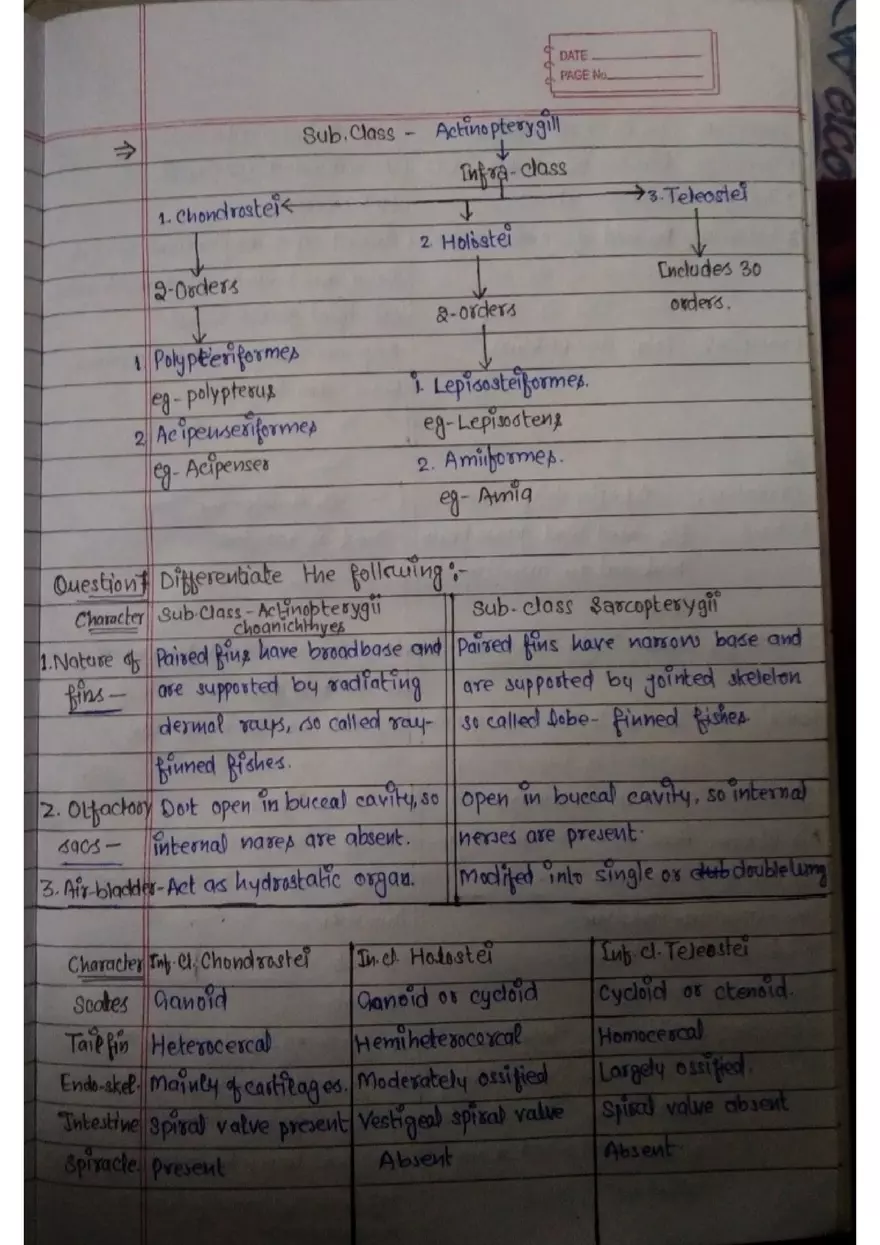 DATE
PAGE No.
⇒ Sub.Class - Actinopterygii
Infra-class
1. Chondrostei
2 Holostei
3. Teleostei
2-Orders
2-orders
Includes 30
orders.
1 Polypteriformes
eg- polypterus
2 Acipenseriformes
eg- Acipenser
1. Lepisosteiformes.
eg- Lepisosteus
2. Amiiformes.
eg- Amia
Question 7 Differentiate the following :-
Character Sub.Class - Actinopterygii Sub. class Sarcopterygii
choanichthyes
1.Nature of Paired fins have broadbase and Paired fins have narrow base and
fins - are supported by radiating are supported by jointed skeleton
dermal rays, so called ray- so called lobe- finned fishes
finned fishes.
2. Olfactory Do't open in buccal cavity, so Open in buccal cavity, so internal
sacs - internal nares are absent. nerses are present.
3. Air-bladder- Act as hydrostatic organ. Modifed into single or double lung
Character Inf. Cl. Chondrostei In.cl. Holostei Inf. cl. Teleostei
Scales Ganoid Ganoid or cycloid Cycloid or ctenoid.
Tail fin Heterocercal Hemiheterocercal Homocercal
Endo-skel. Mainly of cartilages. Moderately ossified Largely ossified.
Intestine Spiral valve present Vestigeal spiral valve Spiral valve absent
Spiracle Present Absent Absent